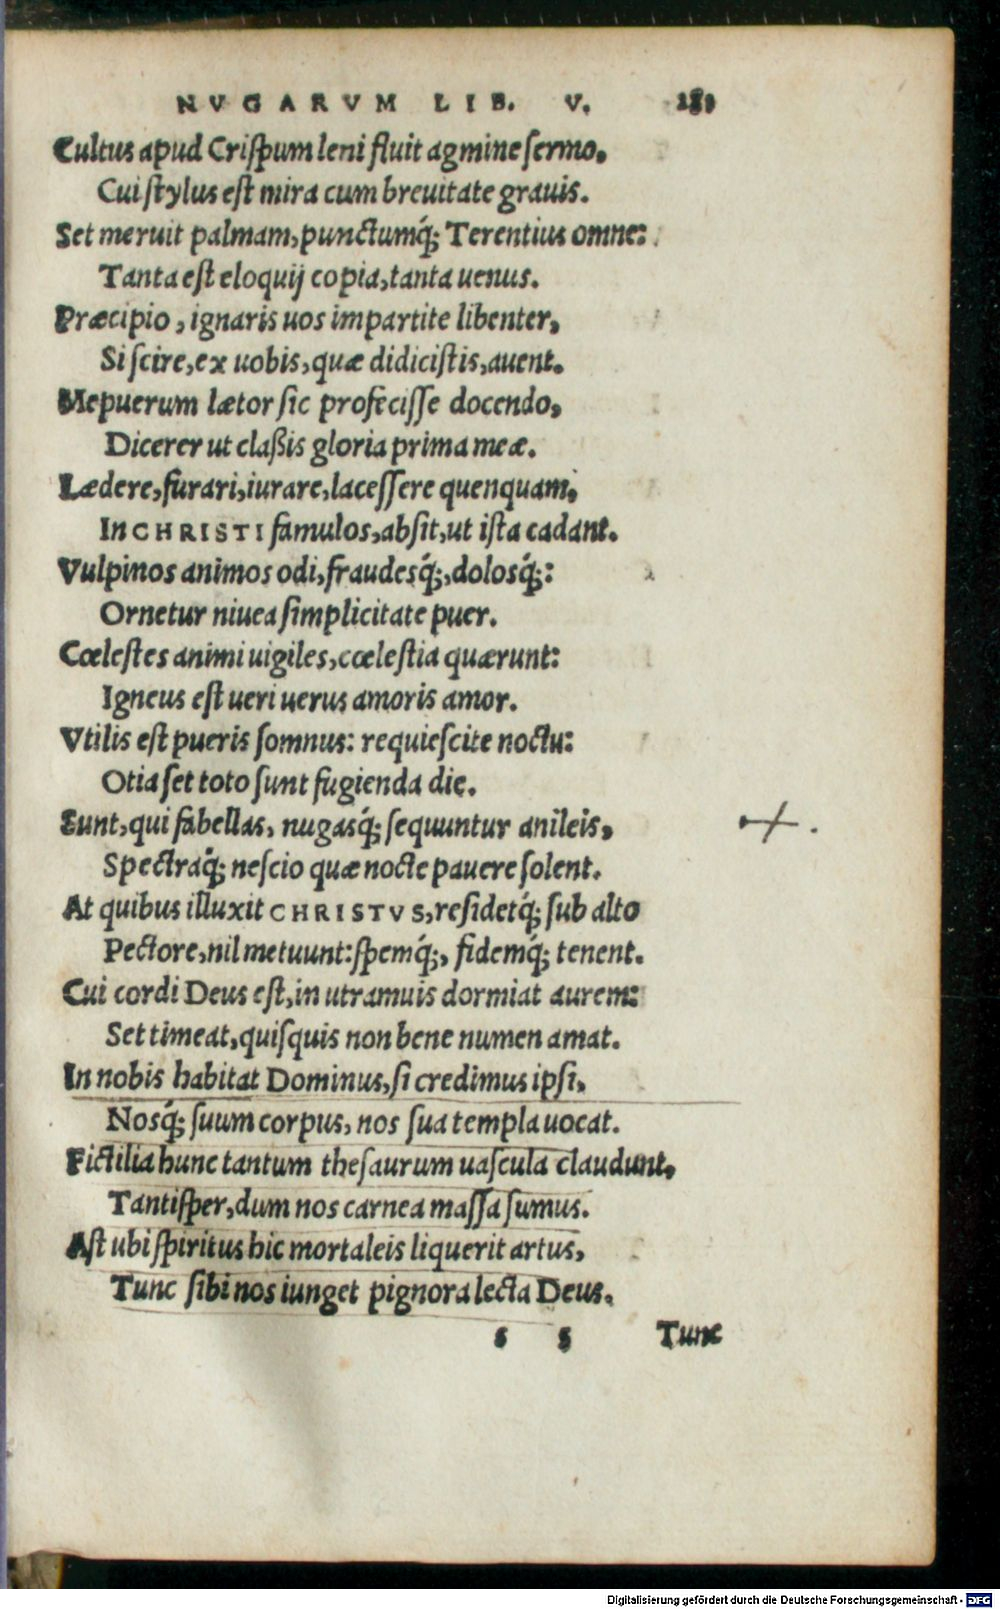 NVGARVM LIB. V.
Cultus apud Crispum leni fluit agmine sermo,
Cui stylus est mira cum breuitate grauis.
Set meruit palmam, punctumq́; Terentius omne:
Tanta est eloquij copia, tanta uenus.
Præcipio, ignaris uos impartite libenter,
Si scire, ex uobis, quæ didicistis, auent.
Me puerum lætor sic profecisse docendo,
Dicerer ut claßis gloria prima meæ.
Lædere, furari, iurare, lacessere quenquam,
In CHRISTI famulos, absit, ut ista cadant.
Vulpinos animos odi, fraudesq́;, dolosq́;:
Ornetur niuea simplicitate puer.
Cœlestes animi uigiles, cœlestia quærunt:
Igneus est ueri uerus amoris amor.
Vtilis est pueris somnus: requiescite noctu:
Otia set toto sunt fugienda die.
Sunt, qui fabellas, nugasq́; sequuntur anileis,
Spectraq́; nescio quæ nocte pauere solent.
At quibus illuxit CHRISTVS, residetq́; sub alto
Pectore, nil metuunt: spemq́;, fidemq́; tenent.
Cui cordi Deus est, in utramuis dormiat aurem:
Set timeat, quisquis non bene numen amat.
In nobis habitat Dominus, si credimus ipsi,
Nosq́; suum corpus, nos sua templa uocat.
Fictilia hunc tantum thesaurum uascula claudunt,
Tantisper, dum nos carnea massa sumus.
Ast ubi spiritus hic mortaleis liquerit artus,
Tunc sibi nos iunget pignora lecta Deus.
s s Tunc
Digitalisierung gefördert durch die Deutsche Forschungsgemeinschaft - DFG